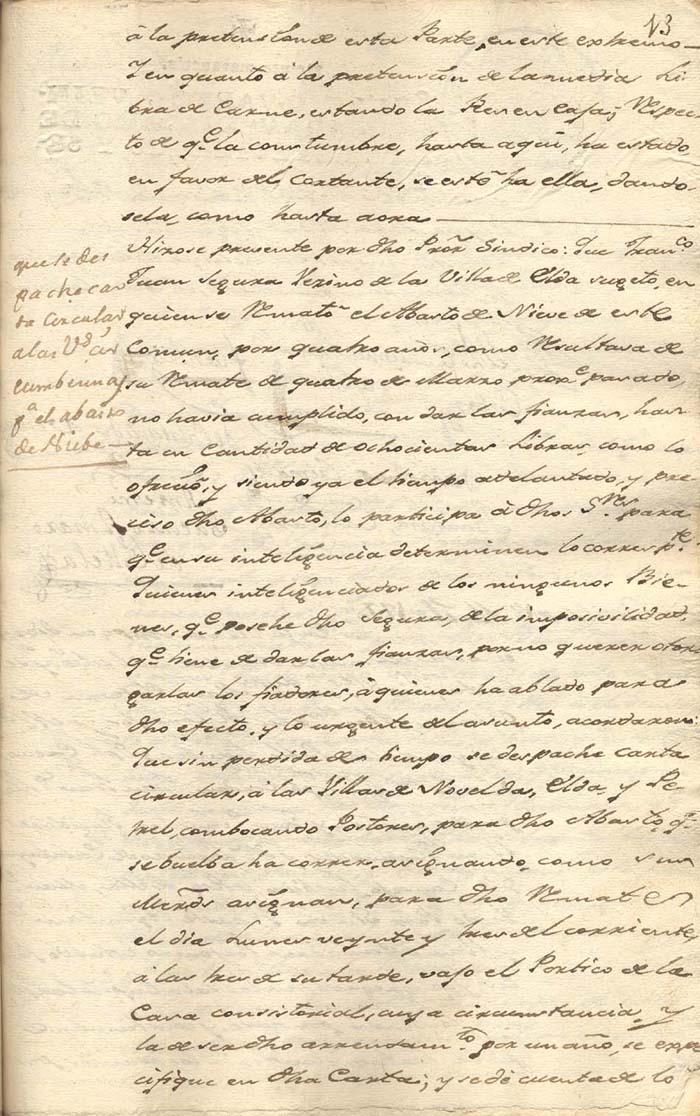 13
à la pretension de esta Parte, en este extremo
Y en quanto à la pretencion de la media Li-
bra de Carne, estando la Res en Casa; Respec-
to de qe. la constumbre, hasta aqui, ha estado
en favor del Cortante, se esté ha ella, dando
sela, como hasta aora
Hizose presente por dho Pror. Sindico: Que Franco
Juan Segura Vezino de la Villa de Elda sugeto, en
quien se Remató el Abasto de Nieve de este
Comun, por quatro años, como Resultava de
su Remate de quatro de Marzo proxo. pasado,
no havia cumplido, con dar las fianzas, has-
ta en Cantidad de ochocientas Libras, como lo
ofreció, y siendo ya el tiempo adelantado, y pre-
ciso dho Abasto, lo participa à dhos Sres. para
qe. en su inteligencia determinen lo corresp.te
Quienes inteligenciados de los ningunos Bie-
nes, qe. posehe dho Segura, de la imposivilidad,
qe. tiene de dar las fianzas, por no querer otor-
garlas los fiadores, à quienes ha ablado para
dho efecto, y lo urgente del asunto, acordaron:
Que sin perdida de tiempo se despache carta
circular, à las Villas de Novelda, Elda, y Pe-
trel, combocando Postores, para dho Abasto, qe.
se buelba ha correr, asignando, como sus
Merzds asignan, para dho Remate
el dia Lunes veynte y tres del corriente
à las tres de su tarde, vajo el Portico de la
Casa consistorial, cuya circunstancia, y
la de ser dho arrendamto. por un año, se expe-
cifique en dha Carta; y se dé cuenta de lo
que se des
pache car
ta Circular
a las Vs.
cumbezinas
pa. el abasto
de Niebe